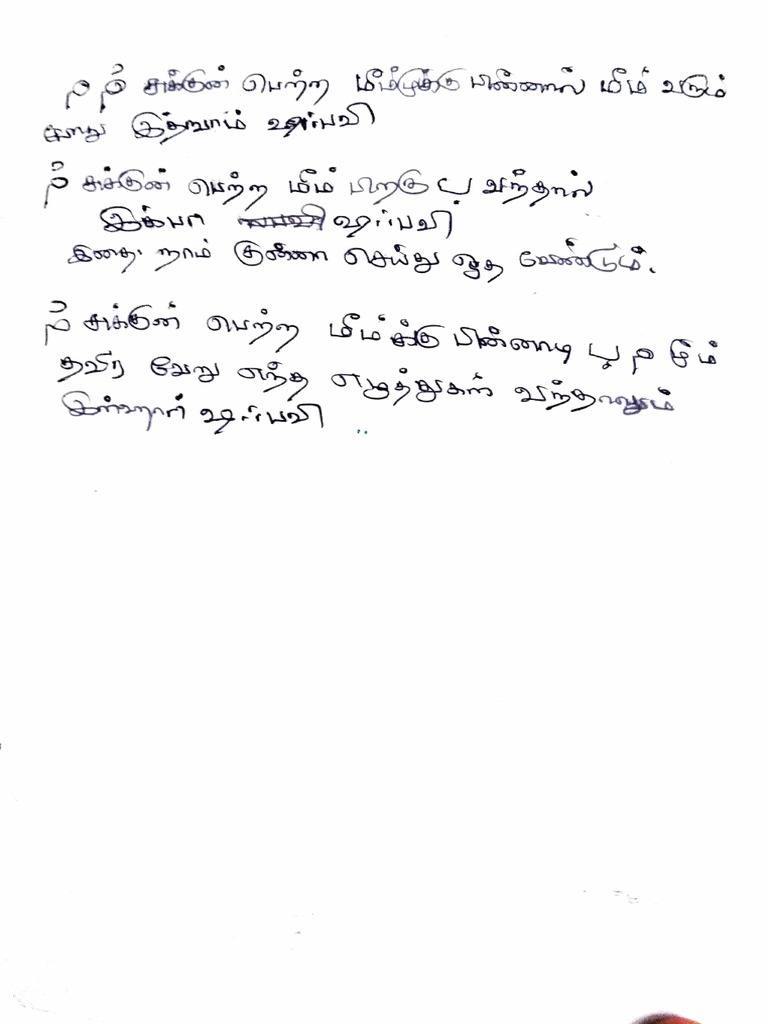 م مْ சுக்குன் பெற்ற மீம்முக்கு பின்னால் மீம் வரும்
போது இத்காம் ஷஃபவி
مْ சுக்குன் பெற்ற மீம் பிறகு ب வந்தால்
இக்ஃபா ஷஃபவி
இதை நாம் குன்னா செய்து ஓத வேண்டும்.
مْ சுக்குன் பெற்ற மீம்க்கு பின்னாடி ب م மீம்
தவிர வேறு எந்த எழுத்துகள் வந்தாலும்
இள்ஹார் ஷஃபவி